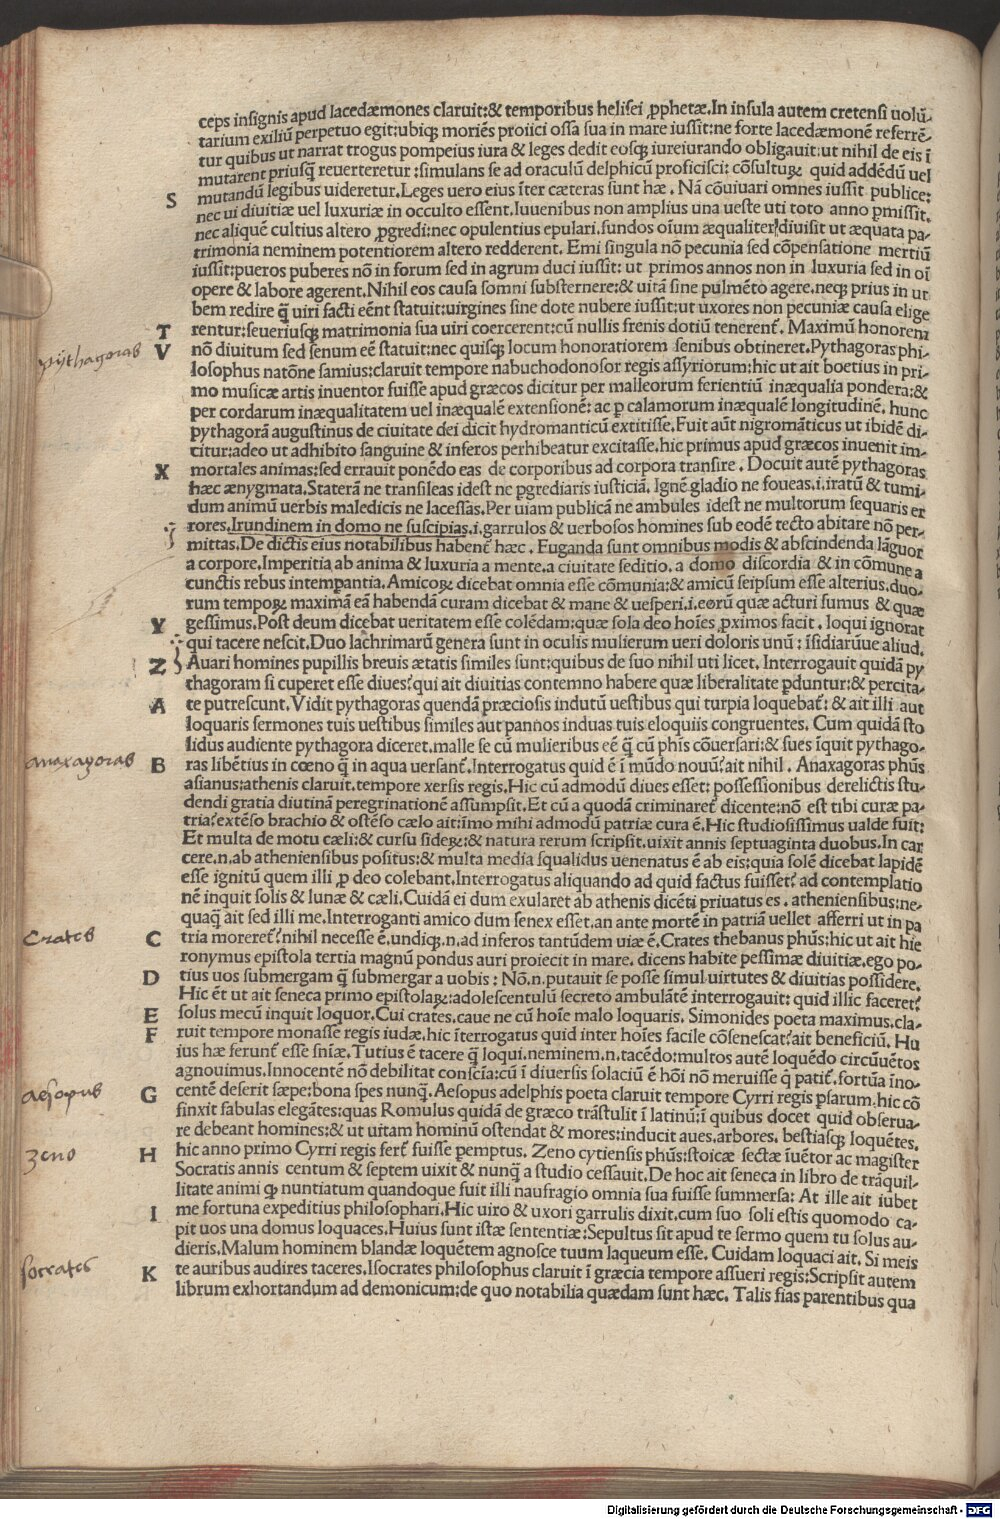 ceps insignis apud lacedæmones claruit:& temporibus helisei ꝓphetæ.In insula autem cretensi uolū-
tarium exiliū perpetuo egit:ubiqꝫ moriēs proiici ossa sua in mare iussit:ne forte lacedæmonē referrē-
tur quibus ut narrat trogus pompeius iura & leges dedit eosqꝫ iureiurando obligauit:ut nihil de eis ī
mutarent priusq̄ reuerteretur :simulans se ad oraculū delphicū proficisci: cōsultuꝝ quid addēdū uel
S mutandū legibus uideretur.Leges uero eius īter cæteras sunt hæ . Nā cōuiuari omnes iussit publice:
nec ui diuitiæ uel luxuriæ in occulto essent.Iuuenibus non amplius una ueste uti toto anno ꝑmisit,
nec aliquē cultius altero ꝓgredi:nec opulentius epulari.fundos oīum æqualiter diuisit ut æquata pa-
trimonia neminem potentiorem altero redderent. Emi singula nō pecunia sed cōpensatione mertiū
iussit:pueros puberes nō in forum sed in agrum duci iussit: ut primos annos non in luxuria sed in oī
opere & labore agerent.Nihil eos causa somni substernere:& uitā sine pulmēto agere.neqꝫ prius in ur
bem redire q̄ uiri facti eēnt statuit:uirgines sine dote nubere iussit:ut uxores non pecuniæ causa elige
T rentur:seueriusqꝫ matrimonia sua uiri coercerent:cū nullis frenis dotiū tenerent̄. Maximū honorem
pythagoras V nō diuitum sed senum eē statuit:nec quisqꝫ locum honoratiorem senibus obtineret.Pythagoras phi-
losophus natōne samius:claruit tempore nabuchodonosor regis assyriorum:hic ut ait boetius in pri-
mo musicæ artis inuentor fuisse apud græcos dicitur per malleorum ferientiū inæqualia pondera:&
per cordarum inæqualitatem uel inæqualē extensionē: ac ꝑ calamorum inæqualē longitudinē, hunc
pythagorā augustinus de ciuitate dei dicit hydromanticū extitisse.Fuit aūt nigromāticus ut ibidē di-
citur:adeo ut adhibito sanguine & inferos perhibeatur excitasse.hic primus apud græcos inuenit im-
X mortales animas:sed errauit ponēdo eas de corporibus ad corpora transire . Docuit autē pythagoras
hæc ænygmata.Staterā ne transileas idest ne ꝑgrediaris iusticiā. Ignē gladio ne foueas.i.iratū & tumi-
dum animū uerbis maledicis ne lacessas.Per uiam publicā ne ambules idest ne multorum sequaris er
rores.Irundinem in domo ne suscipias.i.garrulos & uerbosos homines sub eodē tecto abitare nō per-
mittas.De dictis eius notabilibus habent̄ hæc . Fuganda sunt omnibus modis & abscindenda lāguor
a corpore.Imperitia ab anima & luxuria a mente.a ciuitate seditio. a domo discordia & in cōmune a
cunctis rebus intemꝑantia.Amicoꝝ dicebat omnia esse cōmunia:& amicū seipsum esse alterius.duo-
rum tempoꝝ maximā eā habendā curam dicebat & mane & uesperi.i.eorū quæ acturi sumus & quæ
Y gessimus.Post deum dicebat ueritatem esse colēdam:quæ sola deo hoīes ꝓximos facit . loqui ignorat
qui tacere nescit.Duo lachrimarū genera sunt in oculis mulierum ueri doloris unū : īsidiarūue aliud.
Z Auari homines pupillis breuis ætatis similes sunt:quibus de suo nihil uti licet. Interrogauit quidā py
thagoram si cuperet esse diues?qui ait diuitias contemno habere quæ liberalitate ꝑduntur:& ꝑcita-
A te putrescunt.Vidit pythagoras quendā præciosis indutū uestibus qui turpia loquebat̄: & ait illi aut
loquaris sermones tuis uestibus similes aut pannos induas tuis eloquiis congruentes. Cum quidā sto
lidus audiente pythagora diceret.malle se cū mulieribus eē q̄ cū phīs cōuersari:& sues īquit pythago-
anaxagoras B ras libētius in cœno q̄ in aqua uersant̄.Interrogatus quid ē ī mūdo nouū?ait nihil . Anaxagoras phūs
asianus:athenis claruit.tempore xersis regis.Hic cū admodū diues esset: possessionibus derelictis stu-
dendi gratia diutinā peregrinationē assumpsit.Et cū a quodā criminaret̄ dicente:nō est tibi curæ pa-
tria?extēso brachio & ostēso cælo ait:īmo mihi admodū patriæ cura ē.Hic studiosissimus ualde fuit:
Et multa de motu cæli:& cursu sideꝝ:& natura rerum scripsit.uixit annis septuaginta duobus.In car
cere.n.ab atheniensibus positus:& multa media squalidus uenenatus ē ab eis:quia solē dicebat lapidē
esse ignitū quem illi ꝓ deo colebant.Interrogatus aliquando ad quid factus fuisset? ad contemplatio
nē inquit solis & lunæ & cæli.Cuidā ei dum exularet ab athenis dicēti priuatus es . atheniensibus:ne-
quaq̄ ait sed illi me.Interroganti amico dum senex esset.an ante mortē in patriā uellet afferri ut in pa
Crates C tria moreret̄?nihil necesse ē.undiqꝫ.n.ad inferos tantūdem uiæ ē.Crates thebanus phūs:hic ut ait hie
ronymus epistola tertia magnū pondus auri proiecit in mare. dicens habite pessimæ diuitiæ.ego po-
D tius uos submergam q̄ submergar a uobis : Nō.n.putauit se posse simul uirtutes & diuitias possidere.
Hic ēt ut ait seneca primo epistolaꝝ:adolescentulū secreto ambulātē interrogauit: quid illic faceret?
E solus mecū inquit loquor.Cui crates.caue ne cū hoīe malo loquaris. Simonides poeta maximus.cla-
F ruit tempore monasse regis iudæ.hic īterrogatus quid inter hoīes facile cōsenescat?ait beneficiū. Hu
ius hæ ferunt̄ esse sn̄iæ.Tutius ē tacere q̄ loqui.neminem.n.tacēdo:multos autē loquēdo circūuētos
agnouimus.Innocentē nō debilitat conscia:cū ī diuersis solaciū ē hōi nō meruisse q̄ patit̄.fortūa īno-
aesopus G centē deserit sæpe:bona spes nunq̄.Aesopus adelphis poeta claruit tempore Cyrri regis ꝑsarum.hic cō
finxit fabulas elegātes:quas Romulus quidā de græco trāstulit ī latinū:ī quibus docet quid obserua-
re debeant homines:& ut uitam hominū ostendat & mores:inducit aues.arbores. bestiasqꝫ loquētes.
zeno H hic anno primo Cyrri regis fert̄ fuisse ꝑemptus. Zeno cytiensis phūs:stoicæ sectæ īuētor ac magister
Socratis annis centum & septem uixit & nunq̄ a studio cessauit.De hoc ait seneca in libro de trāquil-
litate animi qꝫ nuntiatum quandoque fuit illi naufragio omnia sua fuisse summersa: At ille ait iubet
I me fortuna expeditius philosophari.Hic uiro & uxori garrulis dixit.cum suo soli estis quomodo ca-
pit uos una domus loquaces.Huius sunt istæ sententiæ:Sepultus sit apud te sermo quem tu solus au-
dieris.Malum hominem blandæ loquētem agnosce tuum laqueum esse. Cuidam loquaci ait. Si meis
socrates K te auribus audires taceres.Isocrates philosophus claruit ī græcia tempore assueri regis:Scripsit autem
librum exhortandum ad demonicum:de quo notabilia quædam sunt hæc. Talis fias parentibus qua
Digitalisierung gefördert durch die Deutsche Forschungsgemeinschaft - DFG